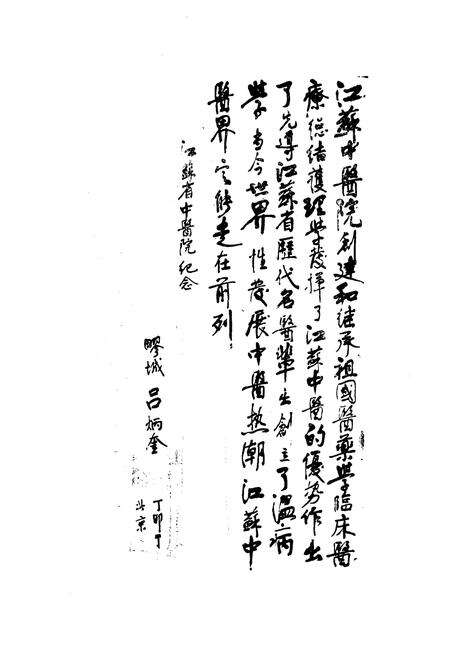 江蘇中醫院創建和继承祖國醫藥學臨床醫
療總结護理学发揮了江蘇中醫的優势作出
了先導江蘇省歷代名醫輩出創立了温病
學当今世界性发展中醫热潮江蘇中
醫界定能走在前列
江蘇省中醫院纪念
吕炳奎
丁卯
北京